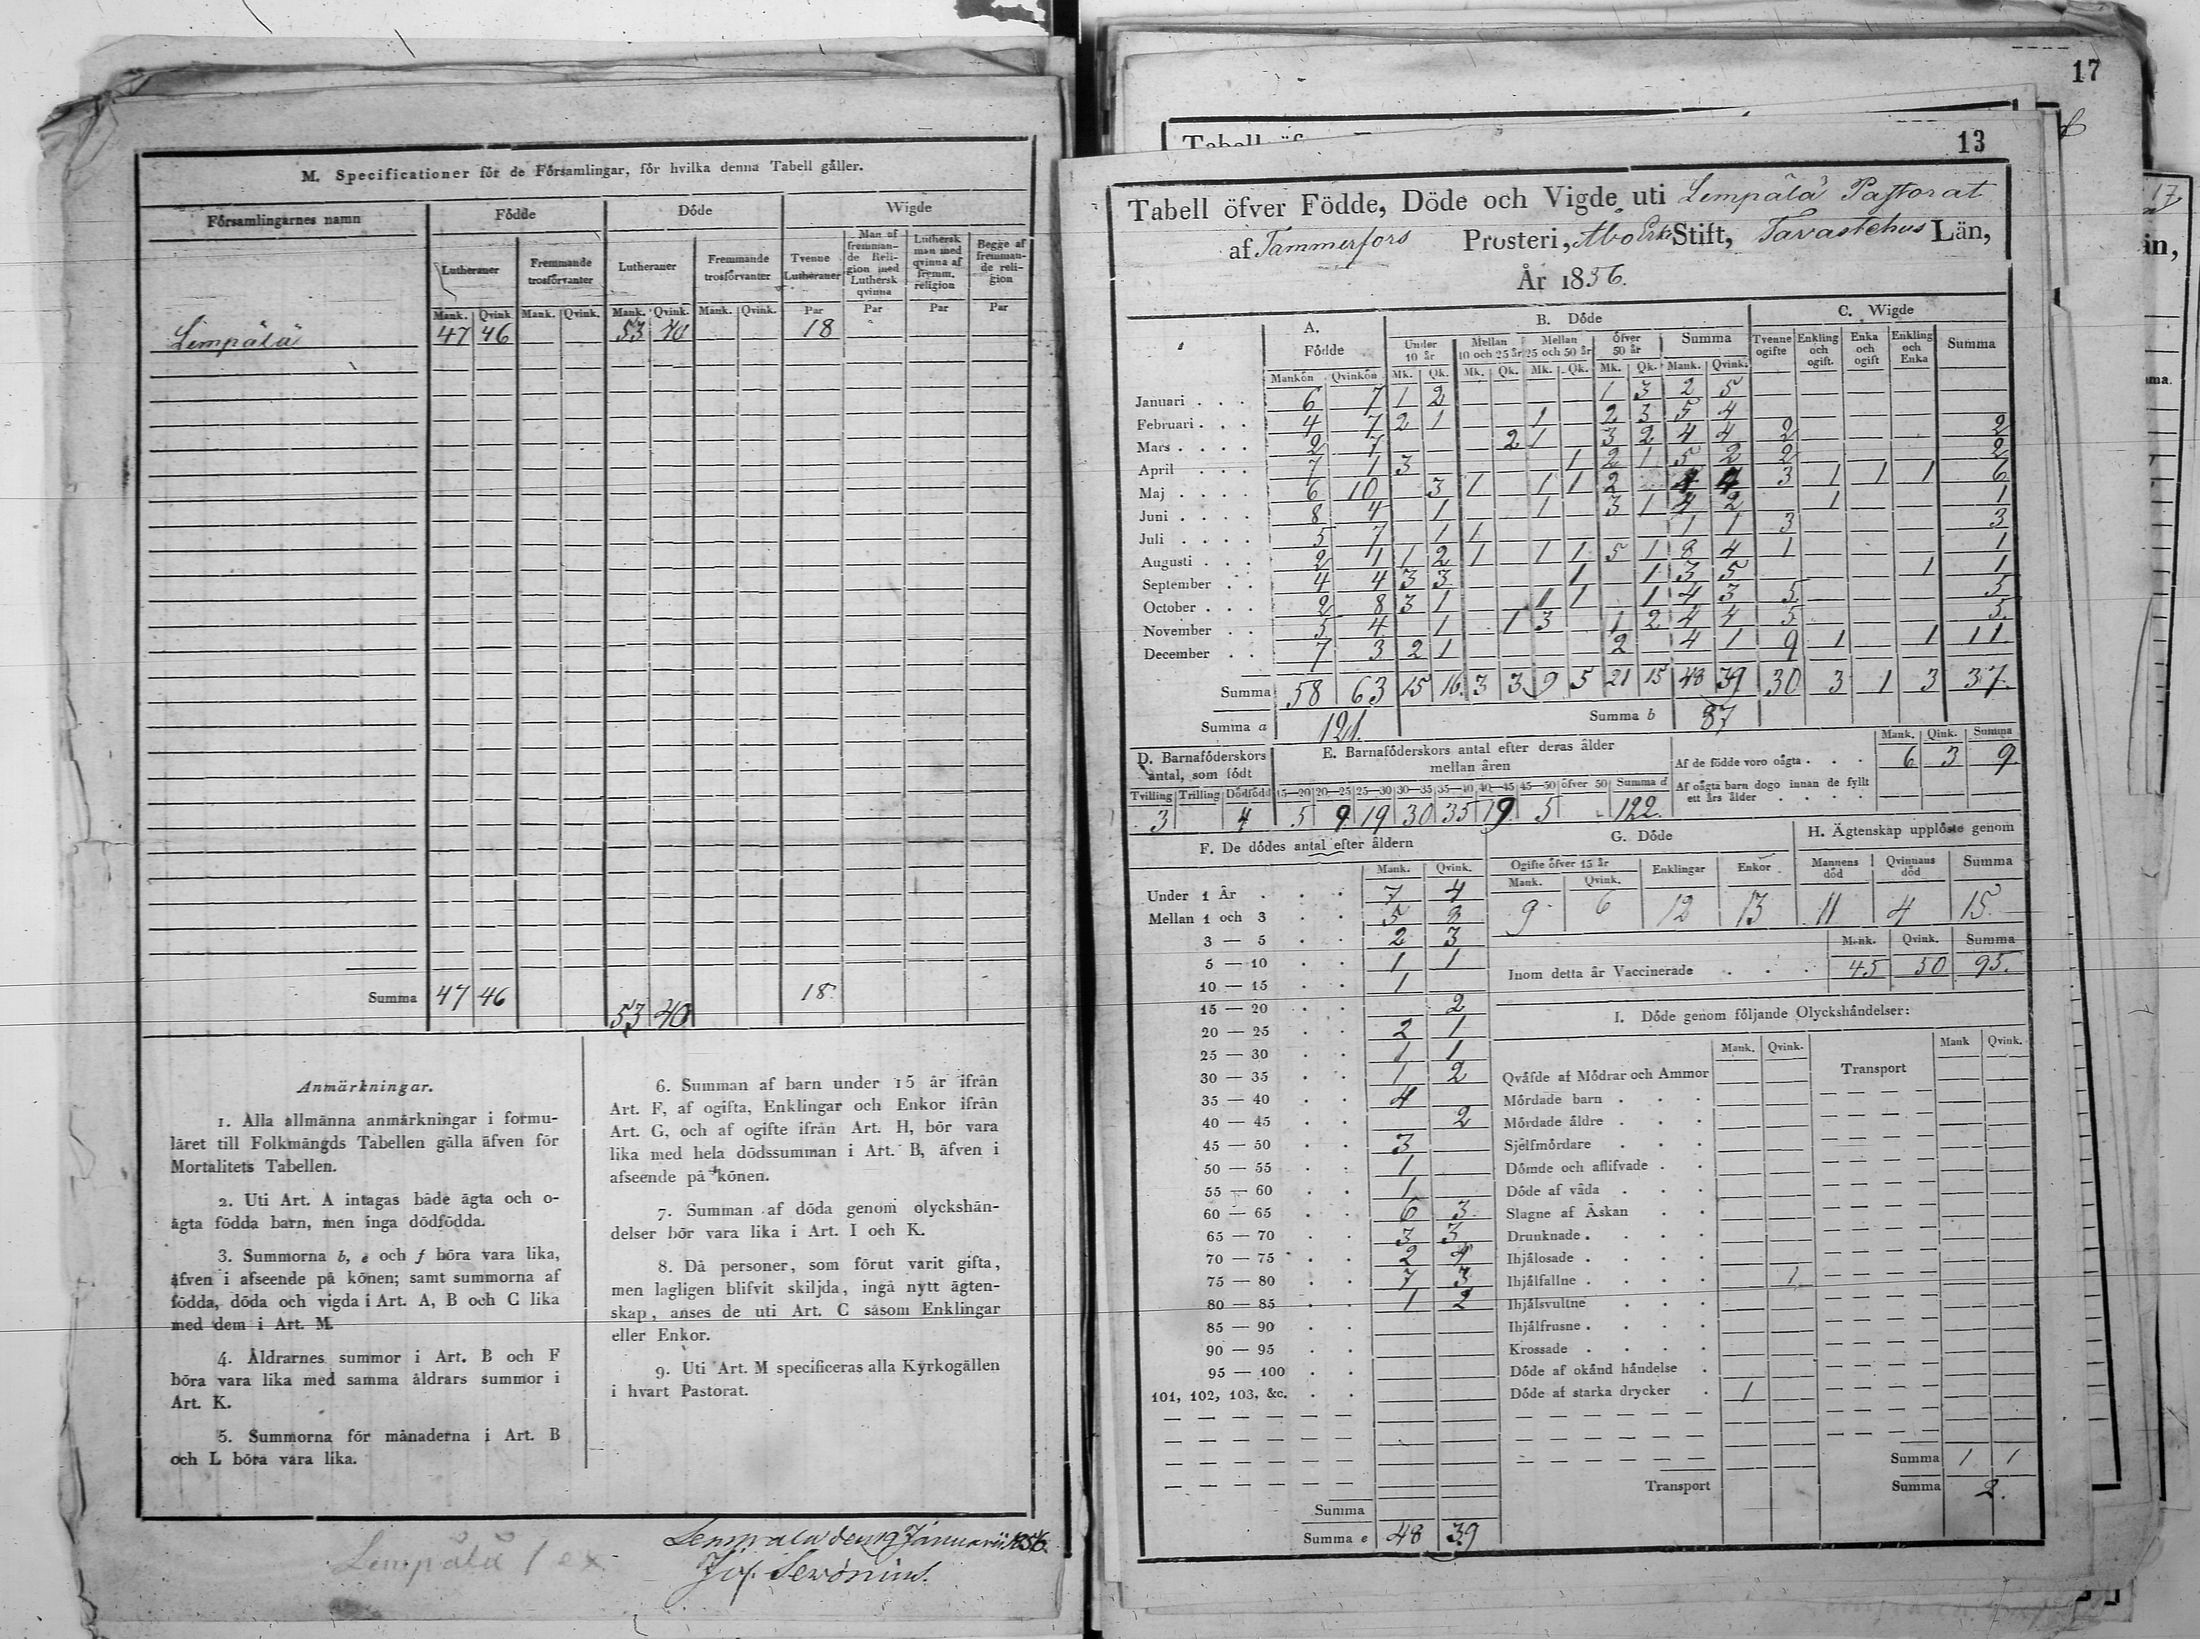 M. Specificationer för de Församlingar, för hvilka denna Tabell gäller.
Församlingarnes namn | Födde | Döde | Wigde
Lutheraner | Fremmande trosförvanter | Lutheraner | Fremmande trosförvanter | Tvenne Lutheraner | Man af fremmande Religion med Luthersk qvinna | Luthersk man med qvinna af fremm. religion | Begge af fremmande religion
Mank. Qvink. Mank. Qvink. Mank. Qvink. Mank. Qvink. Par Par Par Par
Lempälä 47 46 53 40 18
Summa 47 46 53 40 18.
Anmärkningar.
1. Alla allmänna anmärkningar i formu-
läret till Folkmängds Tabellen gälla äfven för
Mortalitets Tabellen.
2. Uti Art. A intagas både ägta och o-
ägta födda barn, men inga dödfödda.
3. Summorna b, e och f böra vara lika,
äfven i afseende på könen; samt summorna af
födda, döda och vigda i Art. A, B och C lika
med dem i Art. M.
4. Åldrarnes summor i Art. B och F
böra vara lika med samma åldrars summor i
Art. K.
5. Summorna för månaderna i Art. B
och L böra vara lika.
6. Summan af barn under 15 år ifrån
Art. F, af ogifta, Enklingar och Enkor ifrån
Art. G, och af ogifte ifrån Art. H, bör vara
lika med hela dödssumman i Art. B, äfven i
afseende på könen.
7. Summan af döda genom olyckshän-
delser bör vara lika i Art. I och K.
8. Då personer, som förut varit gifta,
men lagligen blifvit skiljda, ingå nytt ägten-
skap, anses de uti Art. C såsom Enklingar
eller Enkor.
9. Uti Art. M specificeras alla Kyrkogällen
i hvart Pastorat.
Lempälä 1 ex
Lempälä den 19 Januarii
17
13
Tabell öfver Födde, Döde och Vigde uti Lempälä Pastorat
af Tammerfors Prosteri, Åbo Erke Stift, Tavastehus Län,
År 1836.
A. Födde | B. Döde | C. Wigde
Under 10 år | Mellan 10 och 25 år | Mellan 25 och 50 år | Öfver 50 år | Summa | Tvenne ogifte | Enkling och ogift. | Enka och ogift | Enkling och Enka | Summa
Mankön Qvinkön Mk. Qk. Mk. Qk. Mk. Qk. Mk. Qk. Mank. Qvink.
Januari 6 7 1 2 1 3 2 5
Februari 4 7 2 1 1 2 3 5 4
Mars 2 7 2 1 3 2 4 4 2 2
April 7 1 3 1 2 1 5 2 2 2
Maj 6 10 3 1 1 1 2 4 4 3 1 1 1 6
Juni 8 4 1 1 3 1 4 2 1 1
Juli 5 7 1 1 1 1 3 3
Augusti 2 1 1 2 1 1 1 5 1 8 4 1 1
September 4 4 3 3 1 1 3 5 1 1
October 2 8 3 1 1 1 1 4 3 5 5
November 5 4 1 1 3 1 2 4 4 5 5.
December 7 3 2 1 2 4 1 9 1 1 11.
Summa 58 63 15 16 3 3 9 5 21 15 48 39 30 3 1 3 37.
Summa a 121. Summa b 87
D. Barnaföderskors antal, som födt
Tvilling Trilling Dödfödd
3 4
E. Barnaföderskors antal efter deras ålder mellan åren
15—20 20—25 25—30 30—35 35—40 40—45 45—50 öfver 50 Summa d
5 9 19 30 35 19 5 - 122.
Mank. Qink. Summa
Af de födde voro oägta 6 3 9.
Af oägta barn dogo innan de fyllt
ett års ålder
F. De dödes antal efter åldern
Mank. Qvink.
Under 1 År 7 4
Mellan 1 och 3 5 8
3 — 5 2 3
5 — 10 1 1
10 — 15 1
15 — 20 2
20 — 25 2 1
25 — 30 1 1
30 — 35 1 2
35 — 40 4
40 — 45 2
45 — 50 3
50 — 55 1
55 — 60 1
60 — 65 6 3
65 — 70 3 3
70 — 75 2 4
75 — 80 7 3
80 — 85 1 2
85 — 90
90 — 95
95 — 100
101, 102, 103, &c.
Summa
Summa e 48 39
G. Döde
Ogifte öfver 15 år | Enklingar | Enkor
Mank. Qvink.
9 6 12 13
H. Ägtenskap upplöste genom
Mannens död | Qvinnans död | Summa
11 4 15
Mank. Qvink. Summa
Inom detta år Vaccinerade 45 50 95.
I. Döde genom följande Olyckshändelser:
Mank. Qvink. Transport Mank Qvink.
Qväfde af Mödrar och Ammor
Mördade barn
Mördade äldre
Sjelfmördare
Dömde och aflifvade
Döde af våda
Slagne af Åskan
Drunknade
Ihjälosade
Ihjälfallne 1
Ihjälsvultne
Ihjälfrusne
Krossade
Döde af okänd händelse
Döde af starka drycker 1
Summa 1 1
Transport Summa 2.